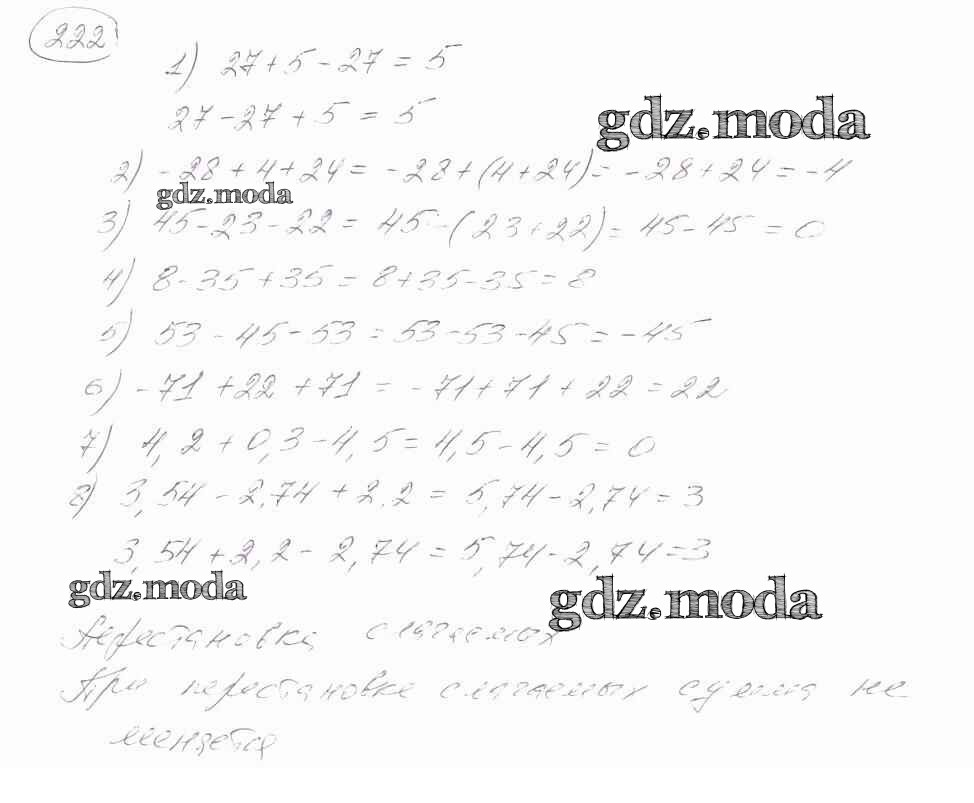 222
1) 27+5-27=5
27-27+5=5
gdz.moda
2) -28+4+24=-28+(4+24)=-28+24=-4
gdz.moda
3) 45-23-22=45-(23+22)=45-45=0
4) 8-35+35=8+35-35=8
5) 53-45-53=53-53-45=-45
6) -71+22+71=-71+71+22=22
7) 4,2+0,3-4,5=4,5-4,5=0
8) 3,54-2,74+2,2=5,74-2,74=3
3,54+2,2-2,74=5,74-2,74=3
gdz.moda
gdz.moda
Перестановка слагаемых
При перестановке слагаемых сумма не
меняется